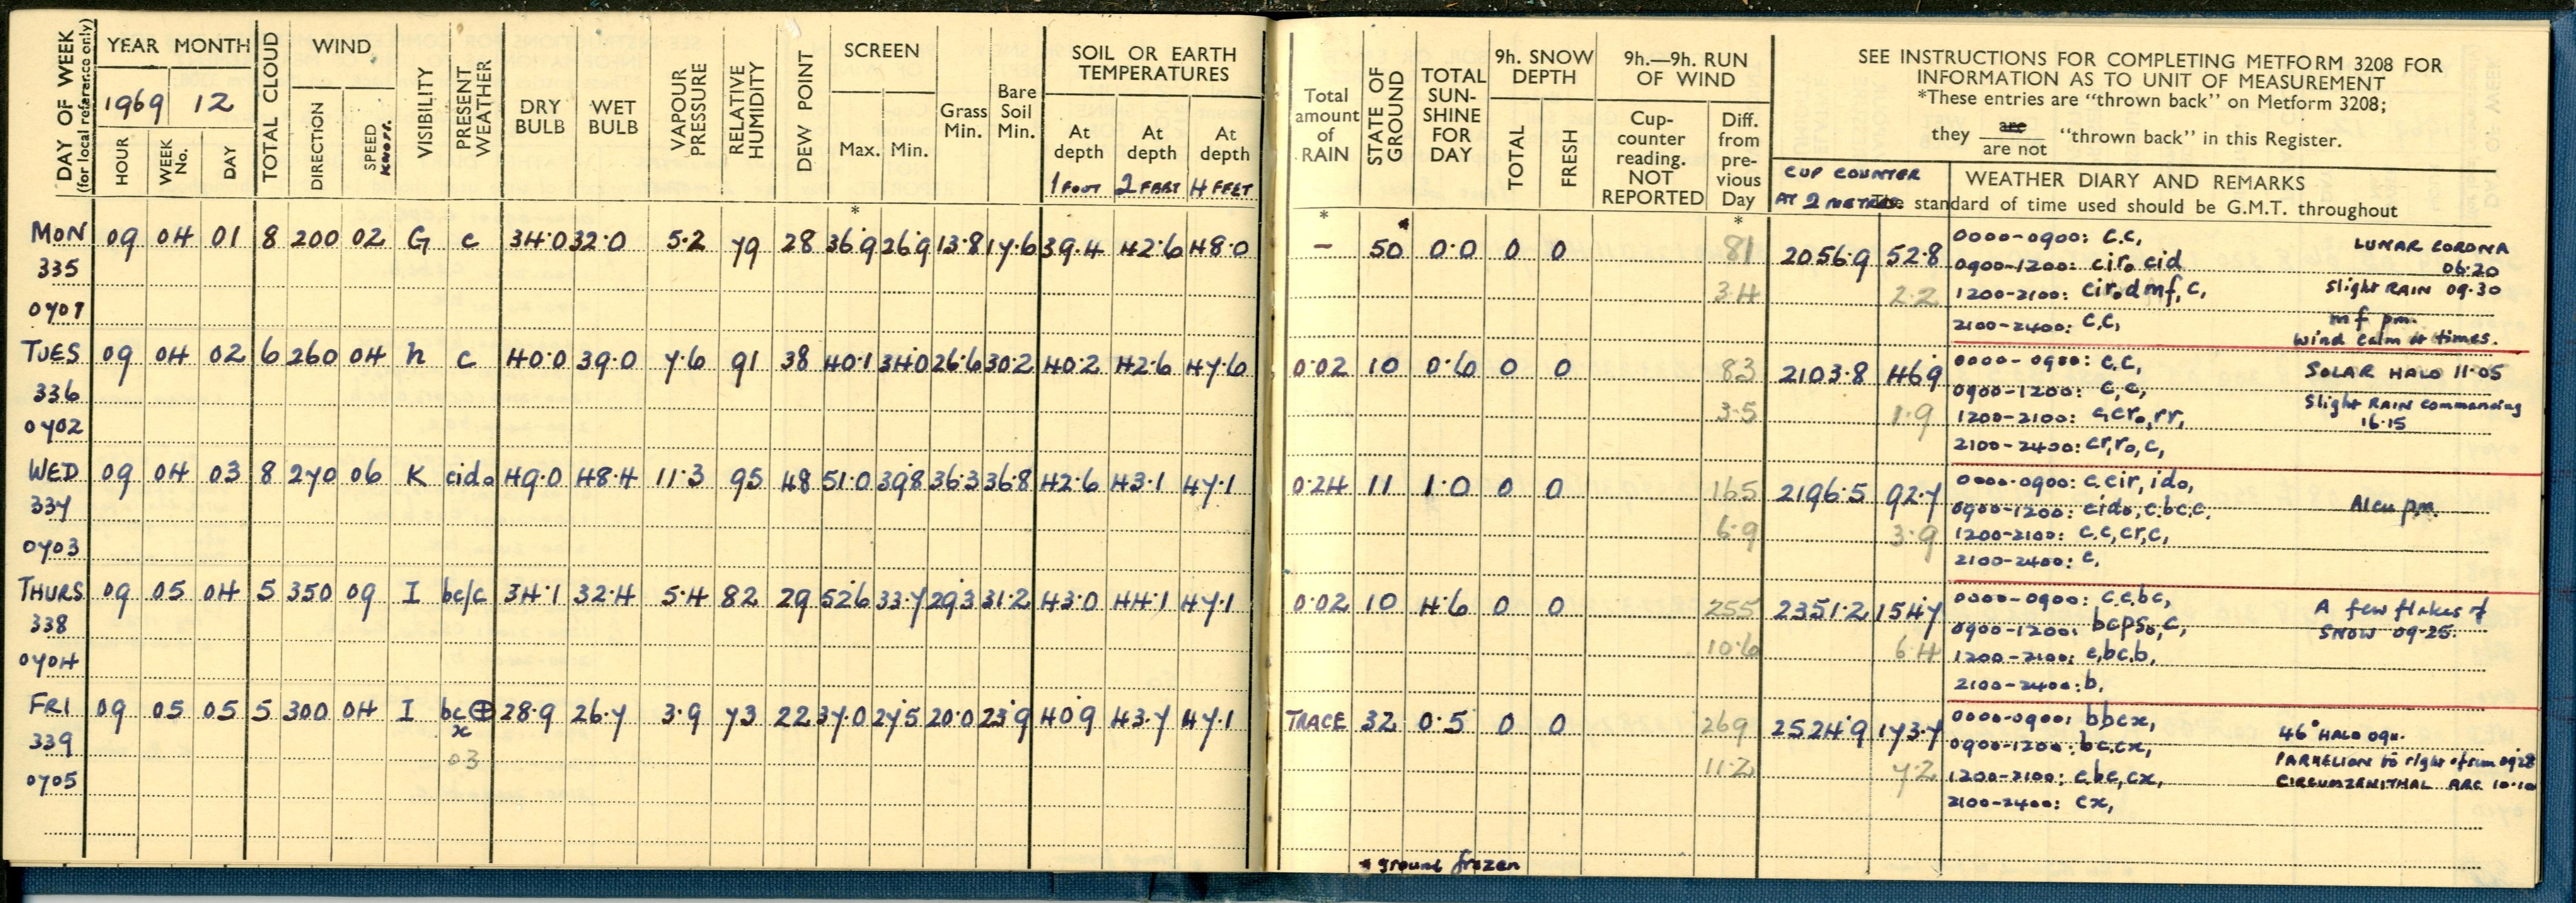 DAY OF WEEK
(for local reference only)
YEAR MONTH
1969 12
HOUR WEEK No. DAY
TOTAL CLOUD
WIND
DIRECTION SPEED KNOTS.
VISIBILITY
PRESENT WEATHER
DRY BULB
WET BULB
VAPOUR PRESSURE
RELATIVE HUMIDITY
DEW POINT
SCREEN
Max. Min.
Grass Min.
Bare Soil Min.
SOIL OR EARTH TEMPERATURES
At depth At depth At depth
1 FOOT 2 FEET 4 FEET
Total amount of RAIN
STATE OF GROUND
TOTAL SUN-SHINE FOR DAY
9h. SNOW DEPTH
TOTAL FRESH
9h.—9h. RUN OF WIND
Cup-counter reading. NOT REPORTED
Diff. from pre-vious Day
SEE INSTRUCTIONS FOR COMPLETING METFORM 3208 FOR
INFORMATION AS TO UNIT OF MEASUREMENT
*These entries are "thrown back" on Metform 3208;
they are / are not "thrown back" in this Register.
CUP COUNTER
AT 2 METRES.
WEATHER DIARY AND REMARKS
The standard of time used should be G.M.T. throughout
* * *
MON 09 04 01 8 200 02 G c 34.0 32.0 5.2 79 28 36.9 26.9 13.8 17.6 39.4 42.6 48.0 – 50 * 0.0 0 0 81 2056.9 52.8
335
0701
3.4 2.2
0000-0900: c.c,
0900-1200: ciro cid
1200-2100: ciro d mf, c,
2100-2400: c.c,
LUNAR CORONA
06.20
Slight RAIN 09.30
mf pm.
Wind calm at times.
TUES 09 04 02 6 260 04 h c 40.0 39.0 7.6 91 38 40.1 34.0 26.6 30.2 40.2 42.6 47.6 0.02 10 0.6 0 0 83 2103.8 46.9
336
0702
3.5 1.9
0000-0900: c.c,
0900-1200: c,c,
1200-2100: c,cro,rr,
2100-2400: cr,ro,c,
SOLAR HALO 11.05
Slight RAIN commencing
16.15
WED 09 04 03 8 270 06 K cido 49.0 48.4 11.3 95 48 51.0 39.8 36.3 36.8 42.6 43.1 47.1 0.24 11 1.0 0 0 165 2196.5 92.7
337
0703
6.9 3.9
0000-0900: c.cir, ido,
0900-1200: cido, c.bc.c,
1200-2100: c.c,cr,c,
2100-2400: c.
Alcu pm.
THURS 09 05 04 5 350 09 I bc/c 34.1 32.4 5.4 82 29 52.6 33.7 29.3 31.2 43.0 44.1 47.1 0.02 10 4.6 0 0 255 2351.2 154.7
338
0704
10.6 6.4
0000-0900: c.c,bc,
0900-1200: bcpso,c,
1200-2100: c,bc,b,
2100-2400: b,
A few flakes of
SNOW 09.25.
FRI 09 05 05 5 300 04 I bc⊕ 28.9 26.7 3.9 73 22 37.0 27.5 20.0 23.9 40.9 43.7 47.1 TRACE 32 0.5 0 0 269 2524.9 173.7
x
339
03
0705
11.2 7.2
0000-0900: bbcx,
0900-1200: bc,cx,
1200-2100: c,bc,cx,
2100-2400: cx,
46° HALO 09h.
PARHELION to right of sun 09.28
CIRCUMZENITHAL ARC 10.10
* ground frozen